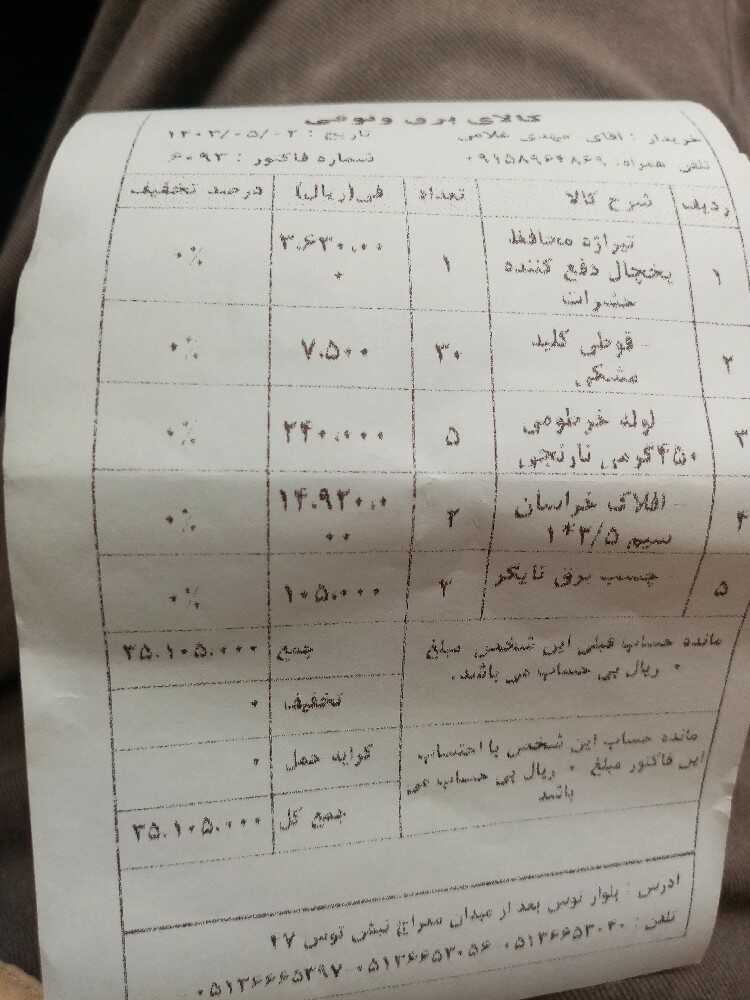 کالای برق
خریدار : آقای مهدی غلامی تاریخ : ۱۴۰۳/۰۵/۰۲
تلفن همراه: ۰۹۱۵۸۹۶۴۸۶۹ شماره فاکتور : ۶۰۹۳
ردیف شرح کالا تعداد فی(ریال) درصد تخفیف
۱ تیراژه محافظ یخچال دفع کننده حشرات ۱ ۳.۶۳۰.۰۰۰ ۰٪
۲ قوطی کلید مشکی ۳۰ ۷.۵۰۰ ۰٪
۳ لوله خرطومی ۴۵۰گرمی نارنجی ۵ ۲۴۰.۰۰۰ ۰٪
۴ افلاک خراسان سیم ۲/۵*۱ ۲ ۱۴.۹۲۰.۰۰۰ ۰٪
۵ چسب برق تایگر ۲ ۱۰۵.۰۰۰ ۰٪
مانده حساب قبلی این شخص مبلغ
۰ ریال بی حساب می باشد.
جمع ۳۵.۱۰۵.۰۰۰
تخفیف ۰
مانده حساب این شخص با احتساب
این فاکتور مبلغ ۰ ریال بی حساب می
باشد
کرایه حمل ۰
جمع کل ۳۵.۱۰۵.۰۰۰
آدرس : بلوار توس بعد از میدان معراج نبش توس ۴۷
تلفن : ۰۵۱۳۶۶۵۳۰۴۰ ۰۵۱۳۶۶۵۳۰۵۶ ۰۵۱۳۶۶۶۵۳۹۷